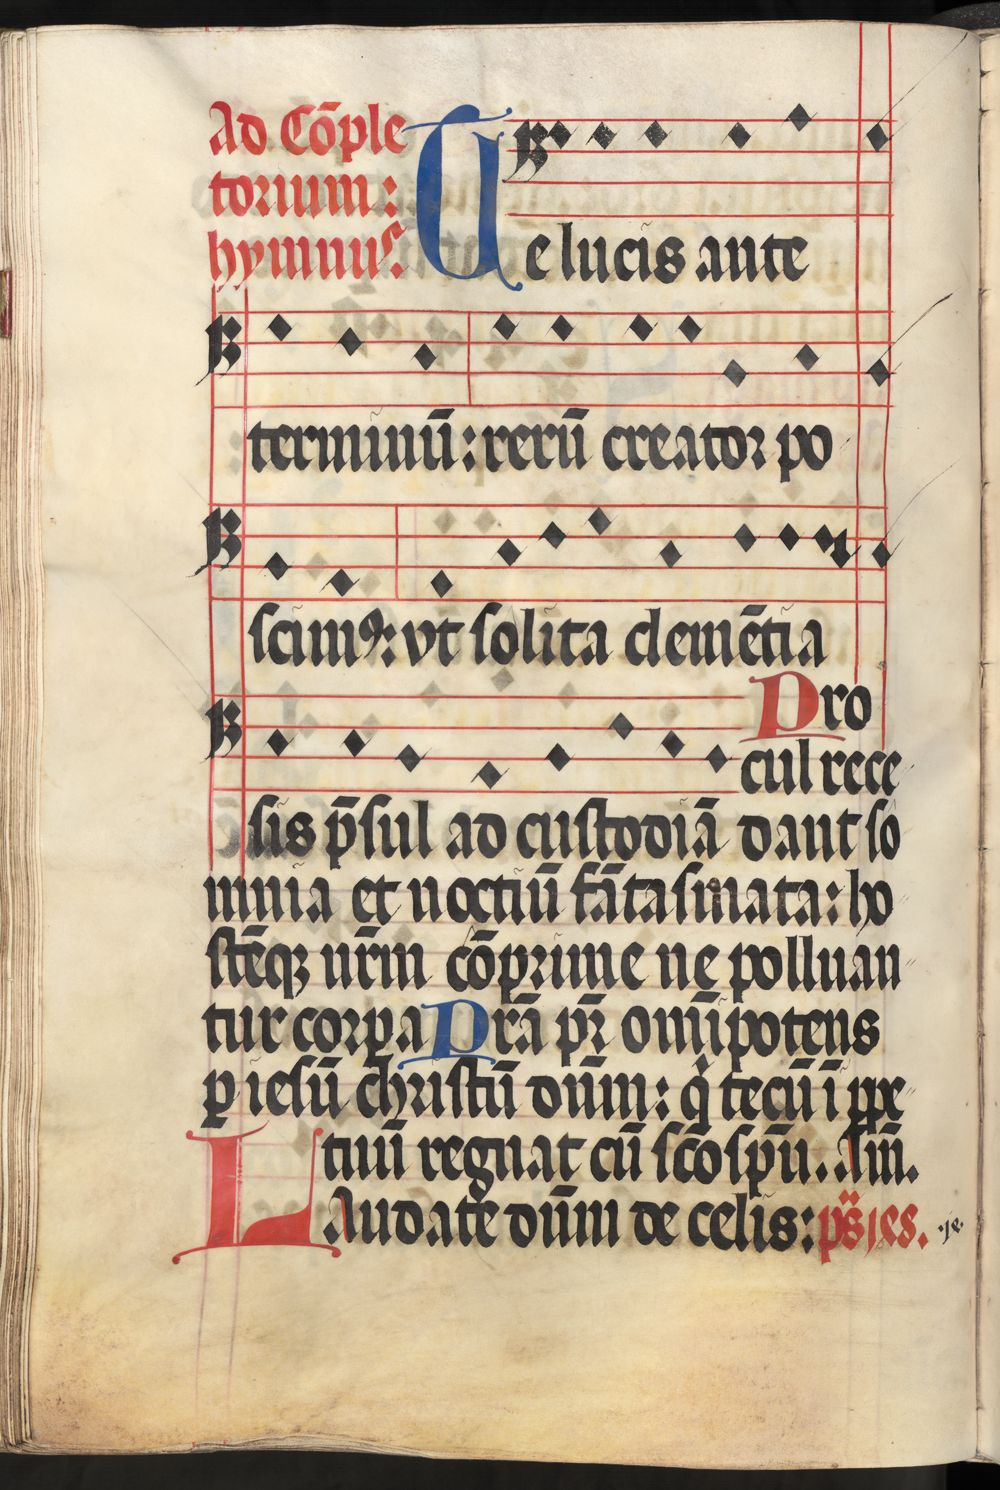 Ad Cōple
torium:
hymnus.
Te lucis ante
terminū: rerū creator po
scimꝰ: vt solita clemētia
Pro
cul rece
sis p̄sul ad custodiā dant so
mnia et noctiū fātasmata: ho
stēqꝫ nr̄m cōprime ne polluan
tur corpa Prā pr̄ omīpotens
ꝑ iesū christū dūm: q̇ tecū ī ꝑpe
tuū regnat cū sco spū. Am̄.
LAudate dūm de celis: ps̄